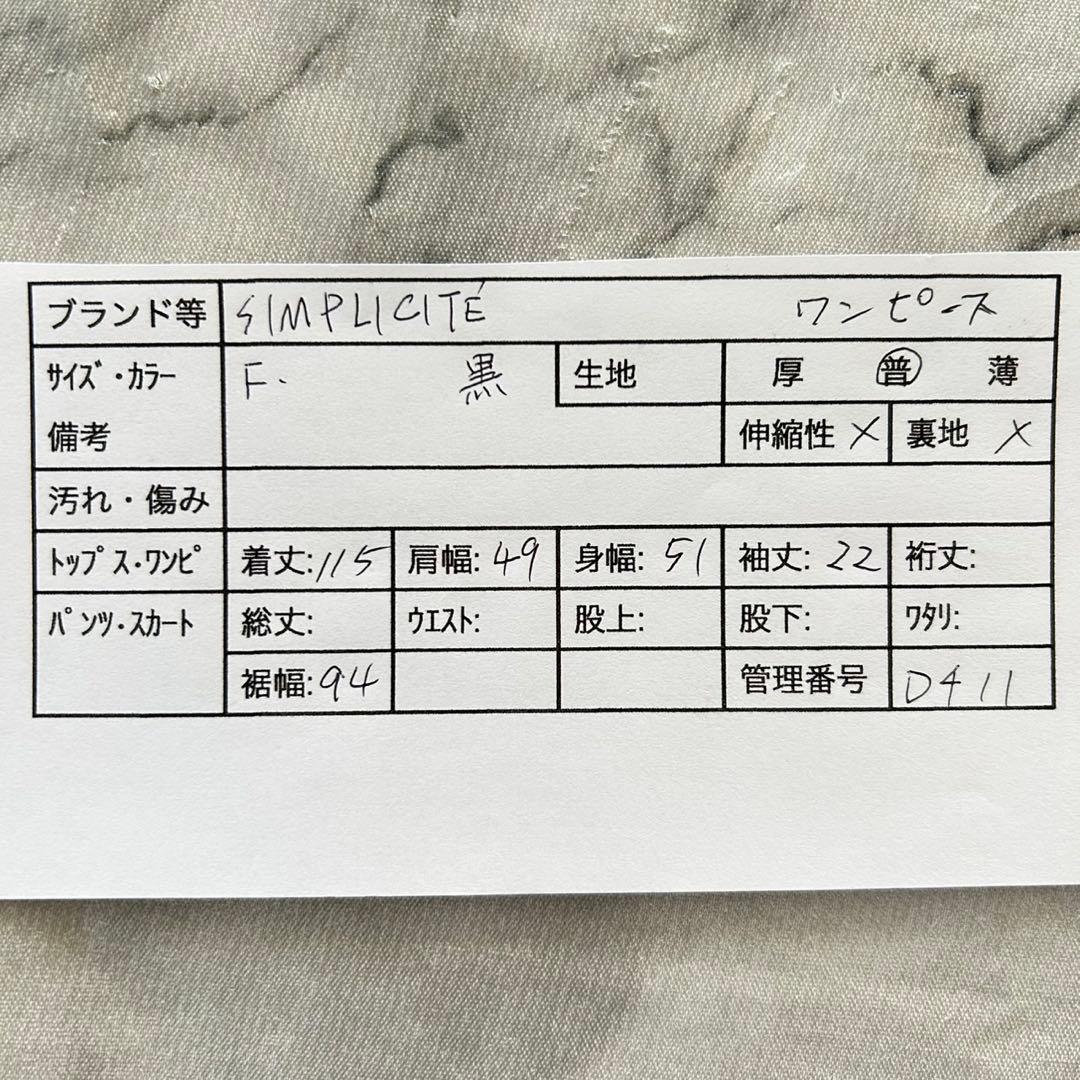 ブランド等 SIMPLICITÉ ワンピース
サイズ・カラー F. 黒 生地 厚 普 薄
備考 伸縮性 × 裏地 ×
汚れ・傷み
トップス・ワンピ 着丈:115 肩幅:49 身幅:51 袖丈:22 裄丈:
パンツ・スカート 総丈: ウエスト: 股上: 股下: ワタリ:
裾幅:94 管理番号 D411